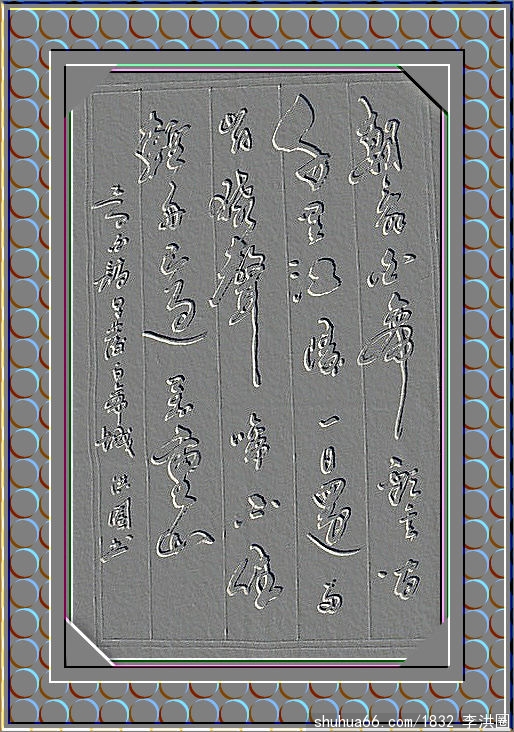 朝辞白帝彩云间
千里江陵一日還两
岸猿聲啼不住
輕舟已過万重山
李白詩早發白帝城 洪圈书
shuhua66.com/1832 李洪圈